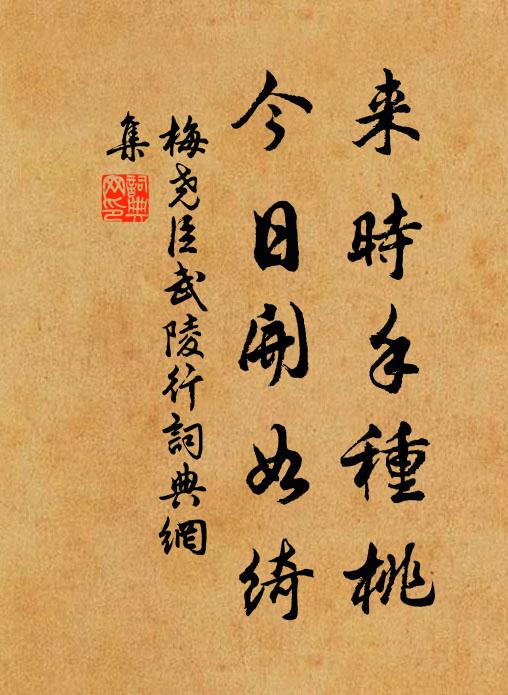 来時手種桃
今日開如綺
梅堯臣武陵行詞典網
集
詞典
网印